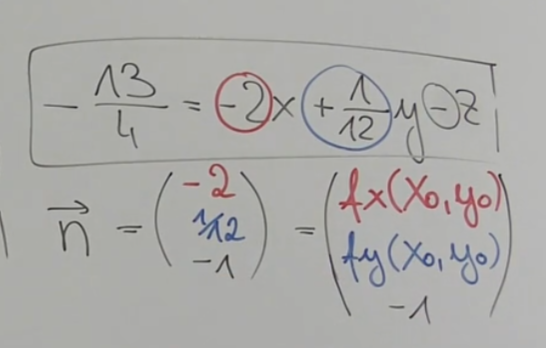 - 13/4 = -2x + 1/12 y - z
n⃗ = (-2, 1/12, -1) = (fx(x₀,y₀), fy(x₀,y₀), -1)